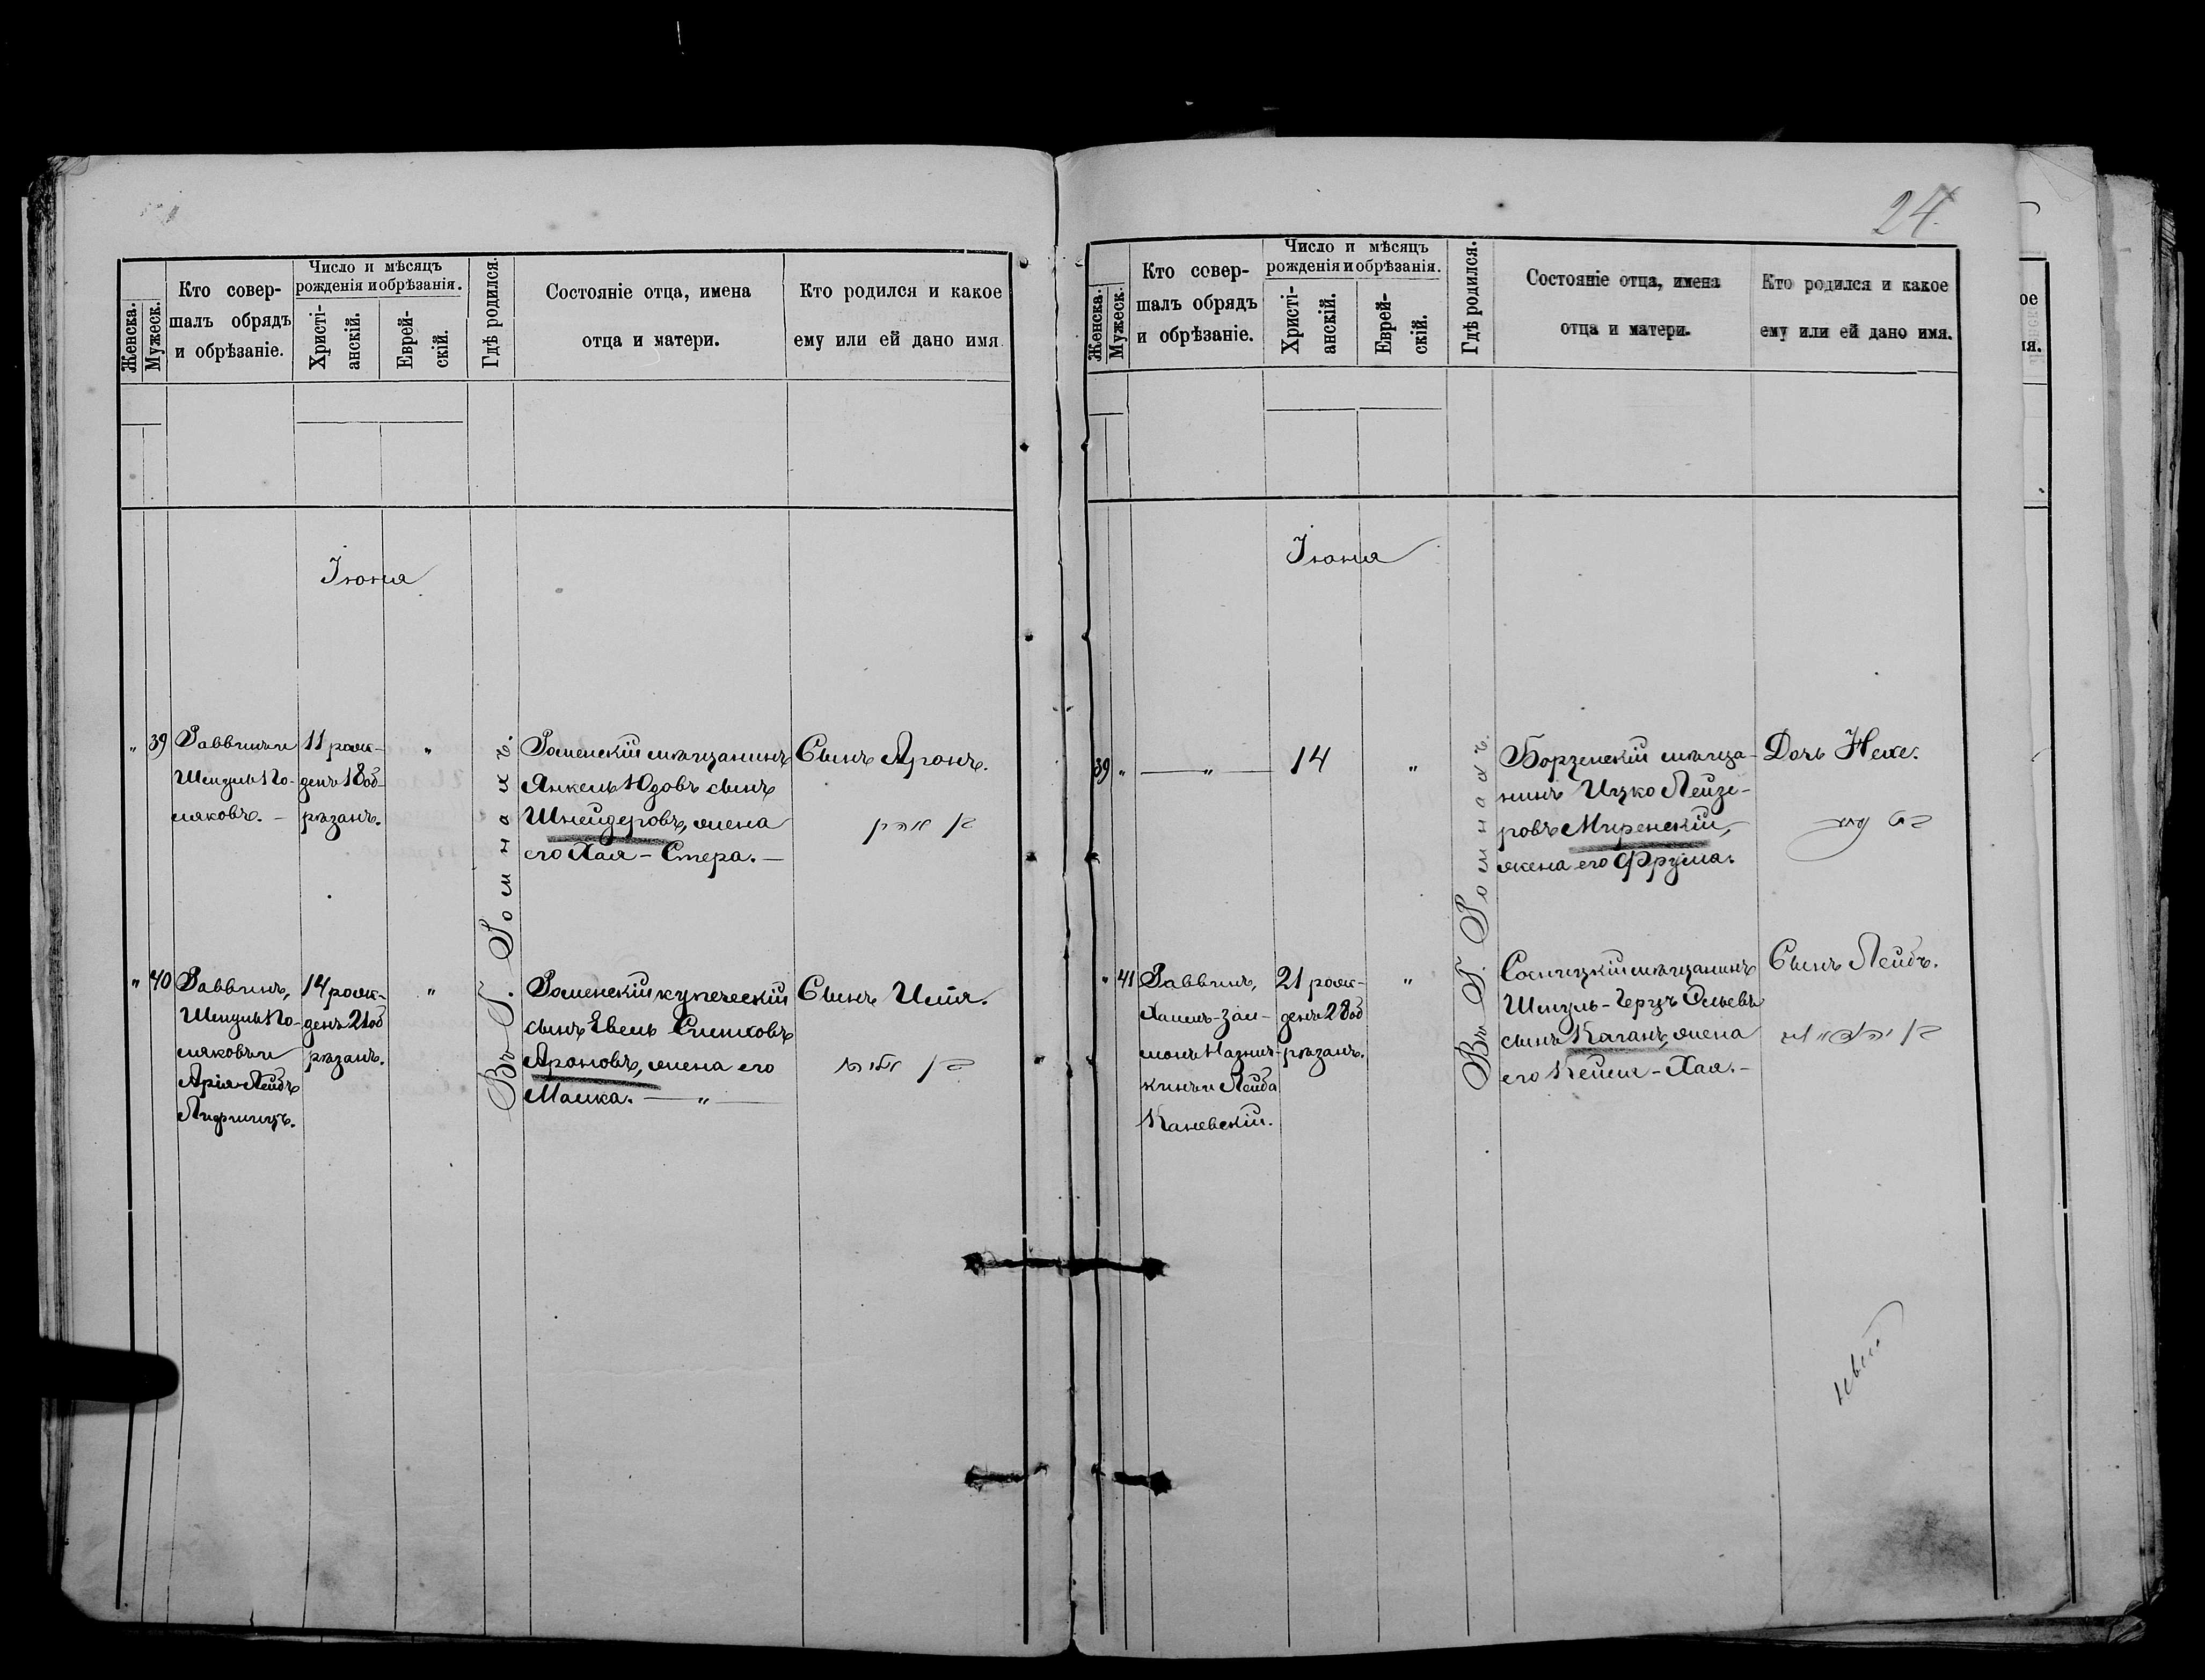 24.
Женска.
Мужеск.
Кто совер-
шалъ обрядъ
и обрѣзаніе.
Число и мѣсяцъ
рожденія и обрѣзанія.
Христі-
анскій.
Еврей-
скій.
Гдѣ родился.
Состояніе отца, имена
отца и матери.
Кто родился и какое
ему или ей дано имя.
Іюня
Въ Г. Ромнахъ.
„ 39
Раввинъ и
Шмуль По-
ляковъ. —
11 рож-
денъ 18 об-
рѣзанъ.
„
Роменскій мѣщанинъ
Янкель Юдовъ сынъ
Шнейдеровъ, жена
его Хая - Стера. —
Сынъ Аронъ.
בן אהרן
„ 40
Раввинъ,
Шмуль По-
ляковъ и
Арія-Лейбъ
Лифшицъ.
14 рож-
денъ 21 об
рѣзанъ.
„
Роменскій купеческій
сынъ Евель
Ароновъ, жена его
Машка. — „ —
Сынъ Илія.
בן אליה
Женска.
Мужеск.
Кто совер-
шалъ обрядъ
и обрѣзаніе.
Число и мѣсяцъ
рожденія и обрѣзанія.
Христі-
анскій.
Еврей-
скій.
Гдѣ родился.
Состояніе отца, имена
отца и матери.
Кто родился и какое
ему или ей дано имя.
Іюня
Въ Г. Ромнахъ.
39 „
— „ —
14
„
Борзенскій мѣща-
нинъ Ицко Лейзе-
ровъ Миренскій,
жена его Фрума.
Дочь Нехе.
בת
„ 41
Раввинъ,
Хаимъ-Зал-
монъ
кинъ и Лейба
Каневскій.
21 рож-
денъ 28 об
рѣзанъ.
„
Сосницкій мѣщанинъ
Шмуль - Герцъ
сынъ Каганъ, жена
его - Хая. —
Сынъ Лейбъ.
בן